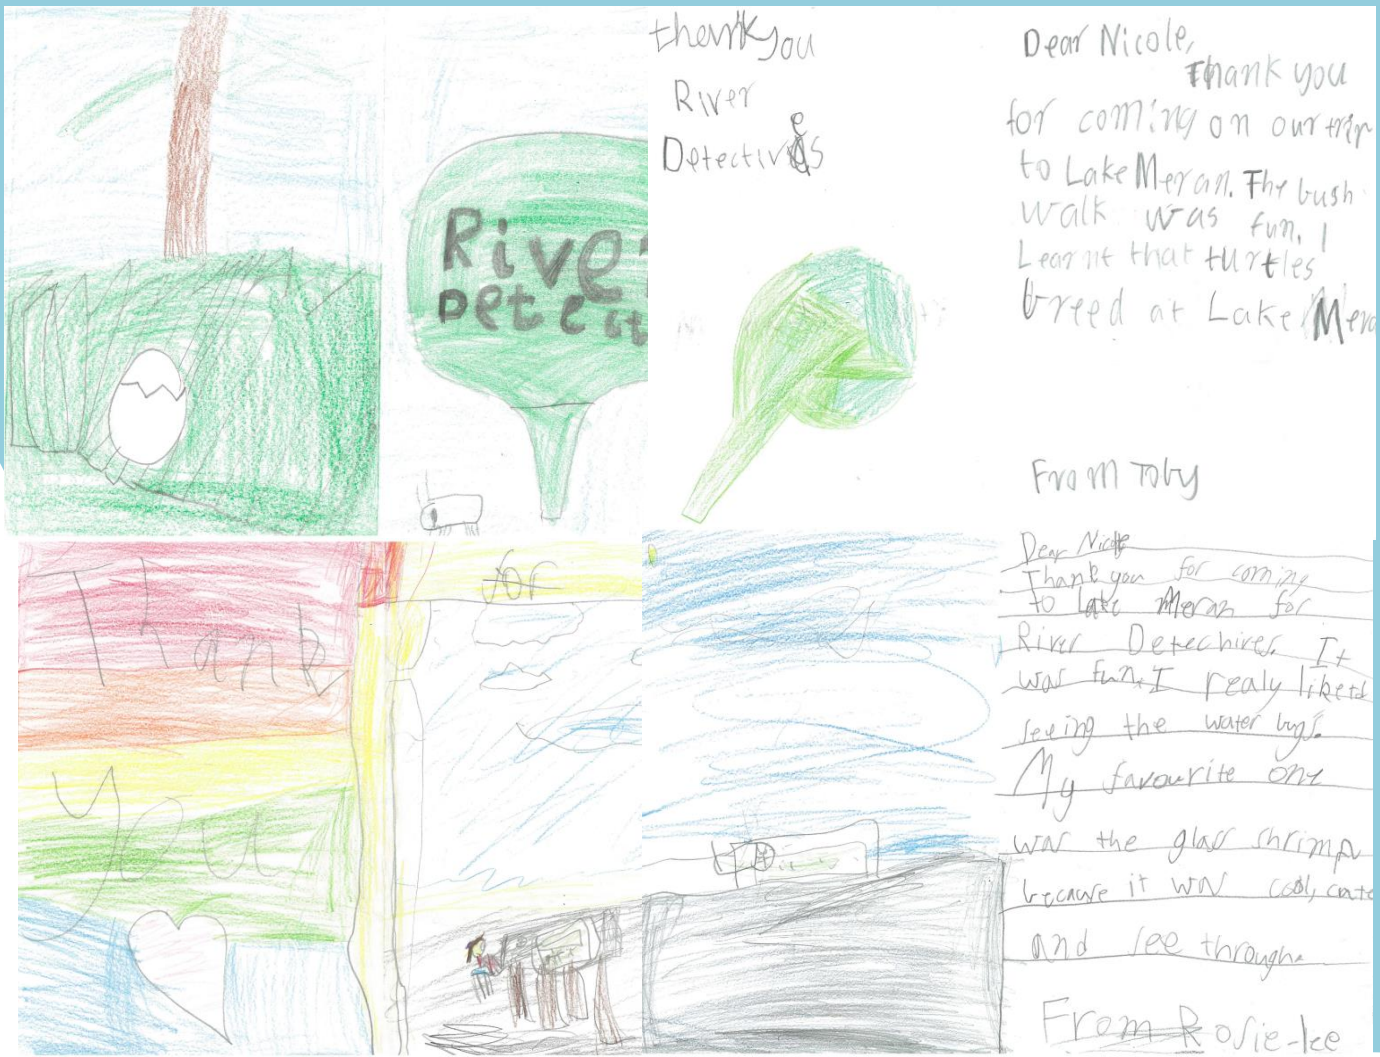 River
Detect
thank you
River
Detectives
Dear Nicole,
Thank you
for coming on our trip
to Lake Meran. The bush
walk was fun. I
Learnt that turtles
breed at Lake Mera
From Toby
Thank
you
for
Dear Nicole
Thank you for coming
to Lake Meran for
River Detechives. It
was fun. I realy liked
seeing the water bugs.
My favourite one
was the glass shrimp
because it was cool, cute
and see through.
From Rosie-lee